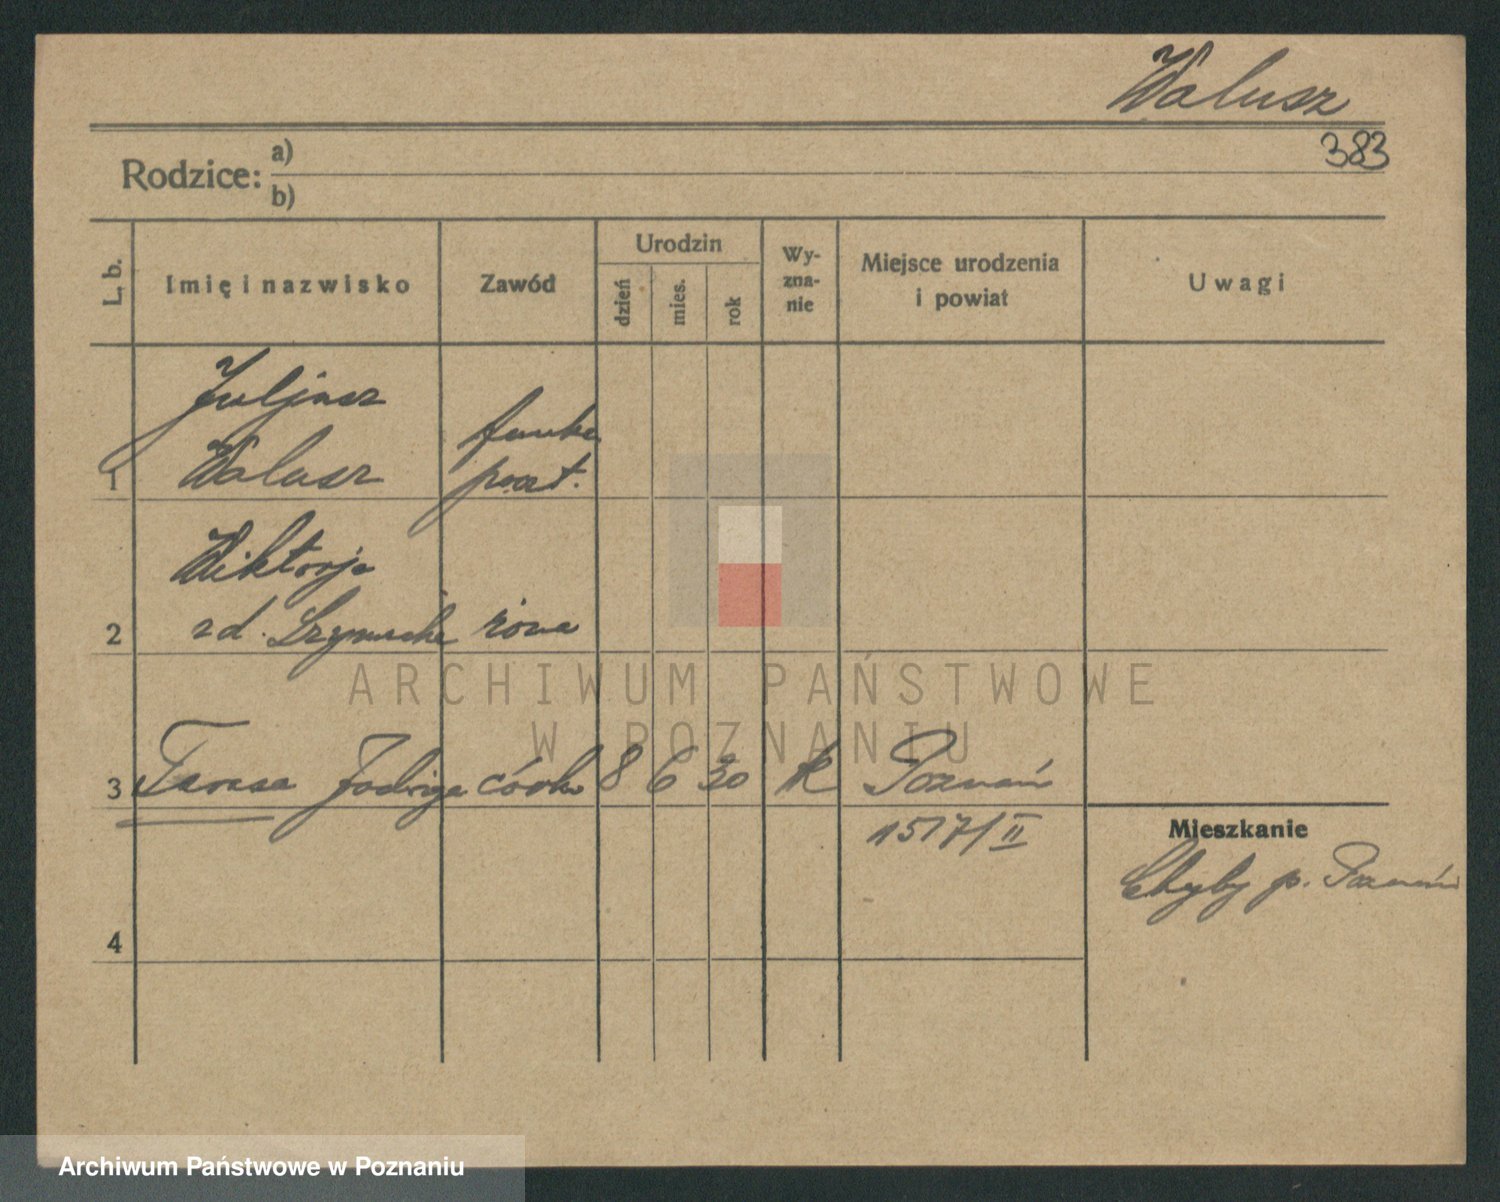 Walusz
383
Rodzice: a)
b)
L. b.
Imię i nazwisko
Zawód
Urodzin
dzień
mies.
rok
Wy-
zna-
nie
Miejsce urodzenia
i powiat
Uwagi
Juljusz
Walusz
funkc.
poczt.
1
Wiktorja
2 zd. żona
3 Teresa Jadwiga córka 8 6 30 k Poznań
1517/II
Mieszkanie
Chyby p. Poznań
4
ARCHIWUM PAŃSTWOWE
W POZNANIU
Archiwum Państwowe w Poznaniu